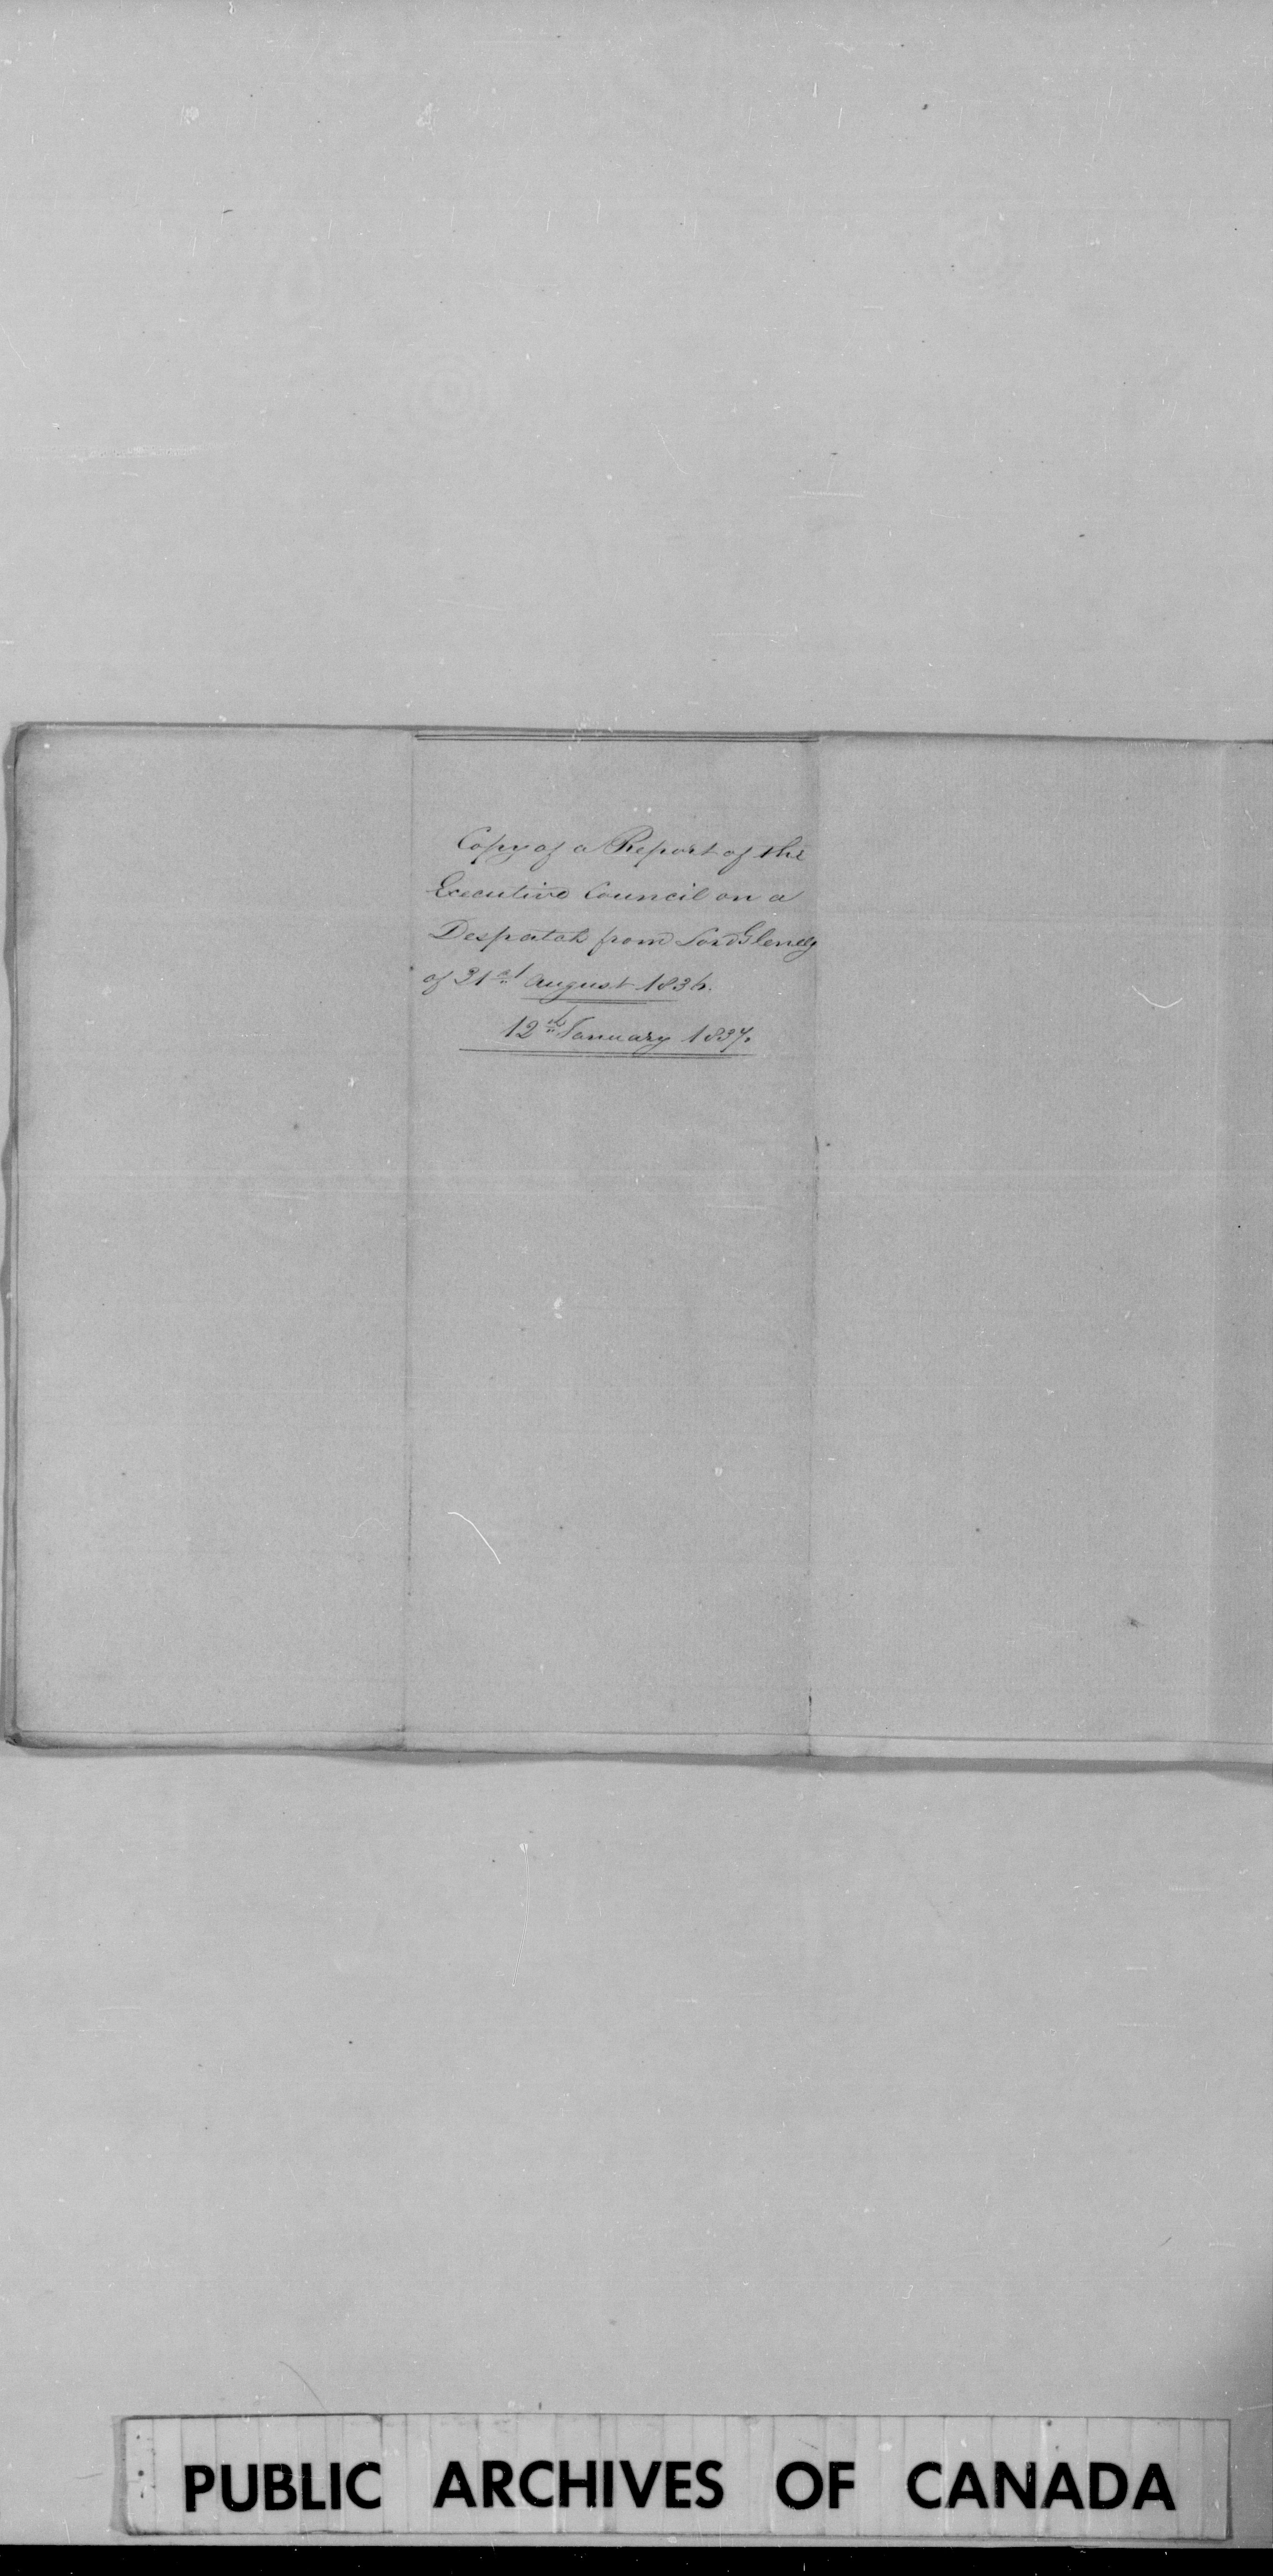 Copy of a Report of the
Executive Council on a
Despatch from Lord Glenelg
of 31st August 1836.
12th January 1837.
PUBLIC ARCHIVES OF CANADA